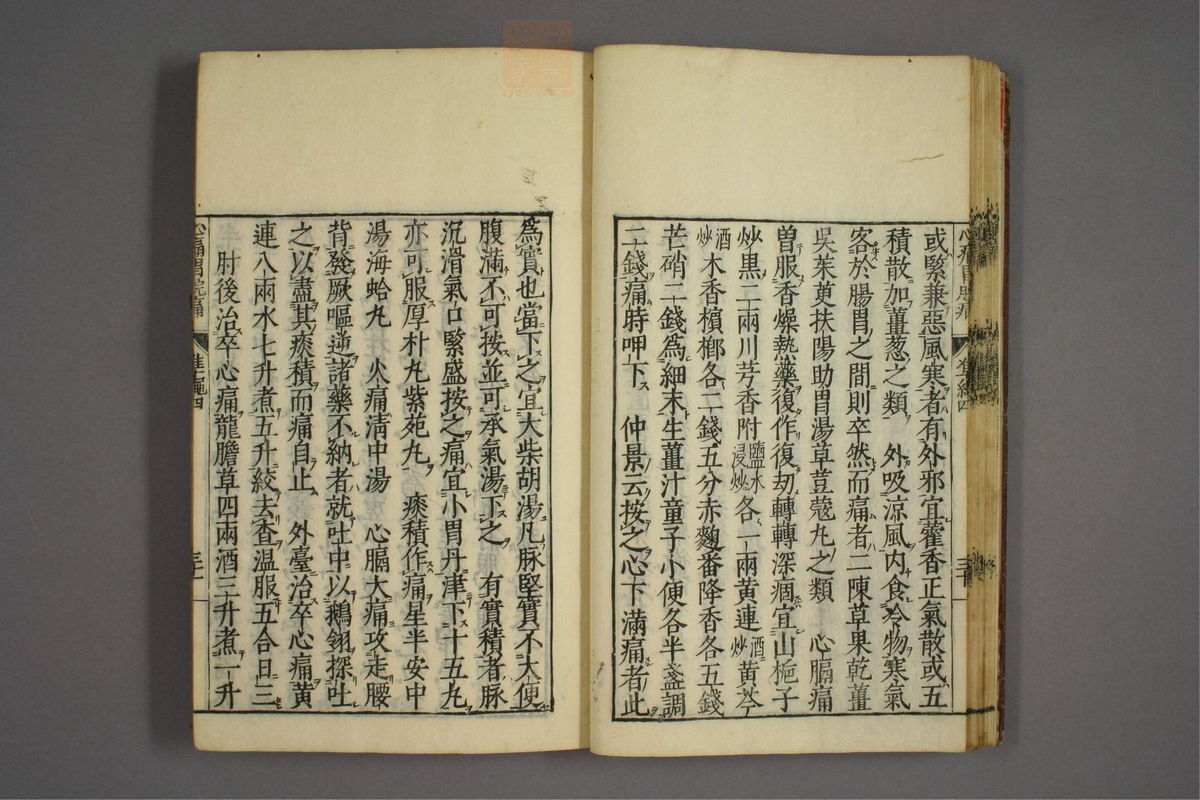 或緊兼惡風寒者有外邪宜藿香正氣散或五
積散加薑葱之類　外吸涼風内食冷物寒氣
客於腸胃之間則卒然而痛者二陳草果乾薑
吳茱萸扶陽助胃湯草荳蔻丸之類　心膈痛
曽服香燥熱藥復作復刼轉轉深痼宜山梔子
炒黒二兩川芎香附鹽水浸炒各一兩黄連酒炒黄芩
酒炒木香檳榔各二錢五分赤麴番降香各五錢
芒硝二錢爲細末生薑汁童子小便各半盞調
二錢痛時呷下　仲景云按之心下滿痛者此
爲實也當下之宜大柴胡湯凡脉堅實不大便
腹滿不可按並可承氣湯下之　有實積者脉
沉滑氣口緊盛按之痛宜小胃丹津下十五丸
亦可服厚朴丸紫苑丸　痰積作痛星半安中
湯海蛤丸　火痛清中湯　心膈大痛攻走腰
背發厥嘔逆諸藥不納者就吐中以鵝翎探吐
之以盡其痰積而痛自止　外臺治卒心痛黄
連八兩水七升煮五升絞去查温服五合日三
肘後治卒心痛龍膽草四兩酒三升煮一升
心痛胃脘痛　准繩四　三十一